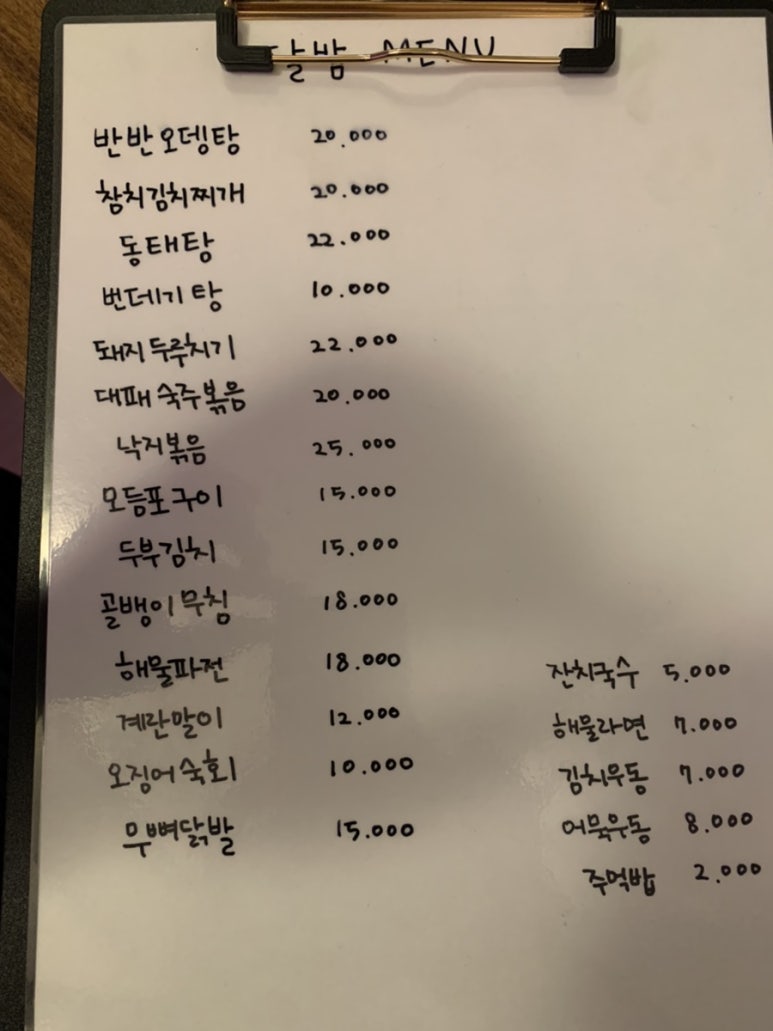 달밤 MENU
반반오뎅탕 20.000
참치김치찌개 20.000
동태탕 22.000
번데기탕 10.000
돼지두루치기 22.000
대패숙주볶음 20.000
낙지볶음 25.000
모듬포구이 15.000
두부김치 15.000
골뱅이무침 18.000
해물파전 18.000
계란말이 12.000
오징어숙회 10.000
무뼈닭발 15.000
잔치국수 5.000
해물라면 7.000
김치우동 7.000
어묵우동 8.000
주먹밥 2.000